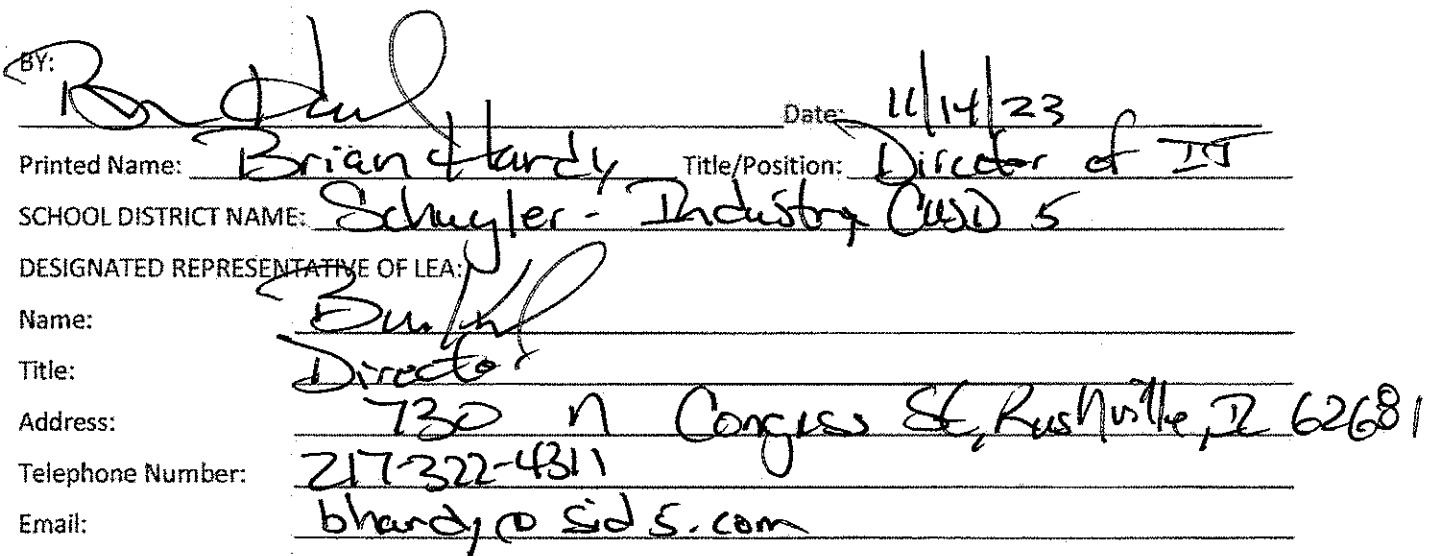 BY:
Date: 11/14/23
Printed Name: Brian Hardy Title/Position: Director of IT
SCHOOL DISTRICT NAME: Schuyler-Industry CUSD 5
DESIGNATED REPRESENTATIVE OF LEA:
Name:
Title: Director
Address: 730 N Congress St, Rushville, IL 62681
Telephone Number: 217-322-4311
Email: bhardy@sid5.com